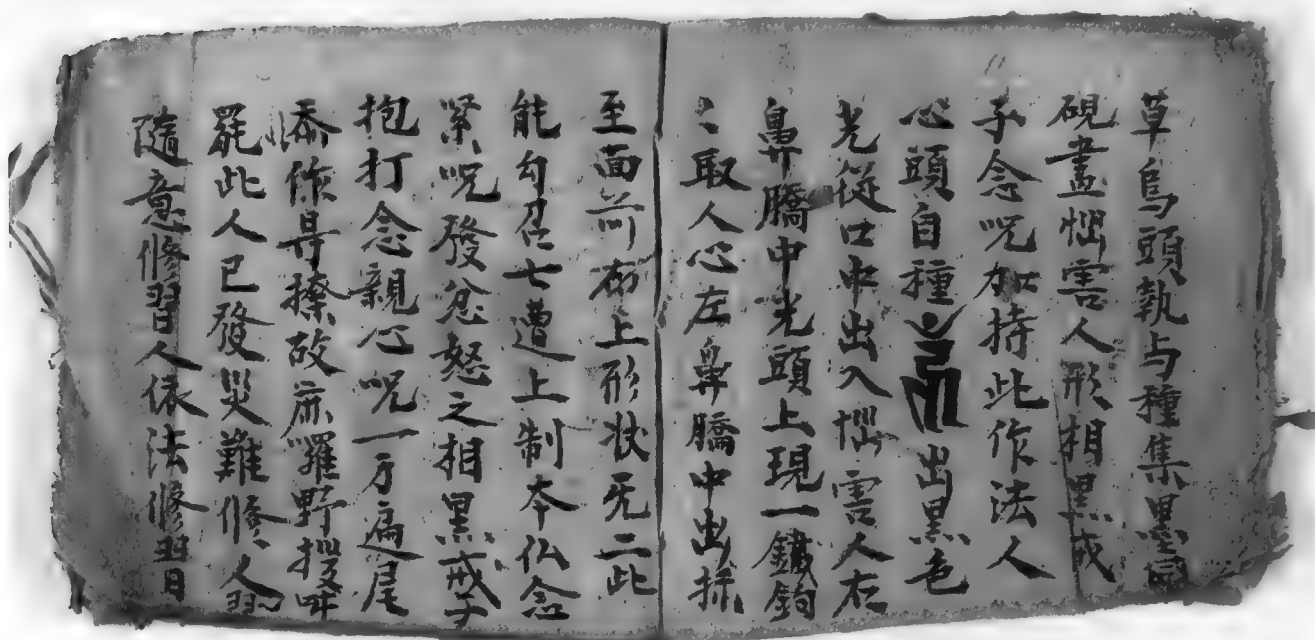 草烏頭執与種集墨
硯畫惱害人形相黑戒
子念呪加持此作法人
心頭自種出黑色
光從口中出入惱害人右
鼻䐭中光頭上現一鐵鈎
〻取人心左鼻䐭中出抺
至面前布上形状无二此
能勾召七遭上制本仏念
紧呪發忿怒之相黑戒子
抱打念親心呪一万遍尾
添作㝵𢵧啟麻囉野吽
罷此人已發災難修人習
隨意修習人依法修習日